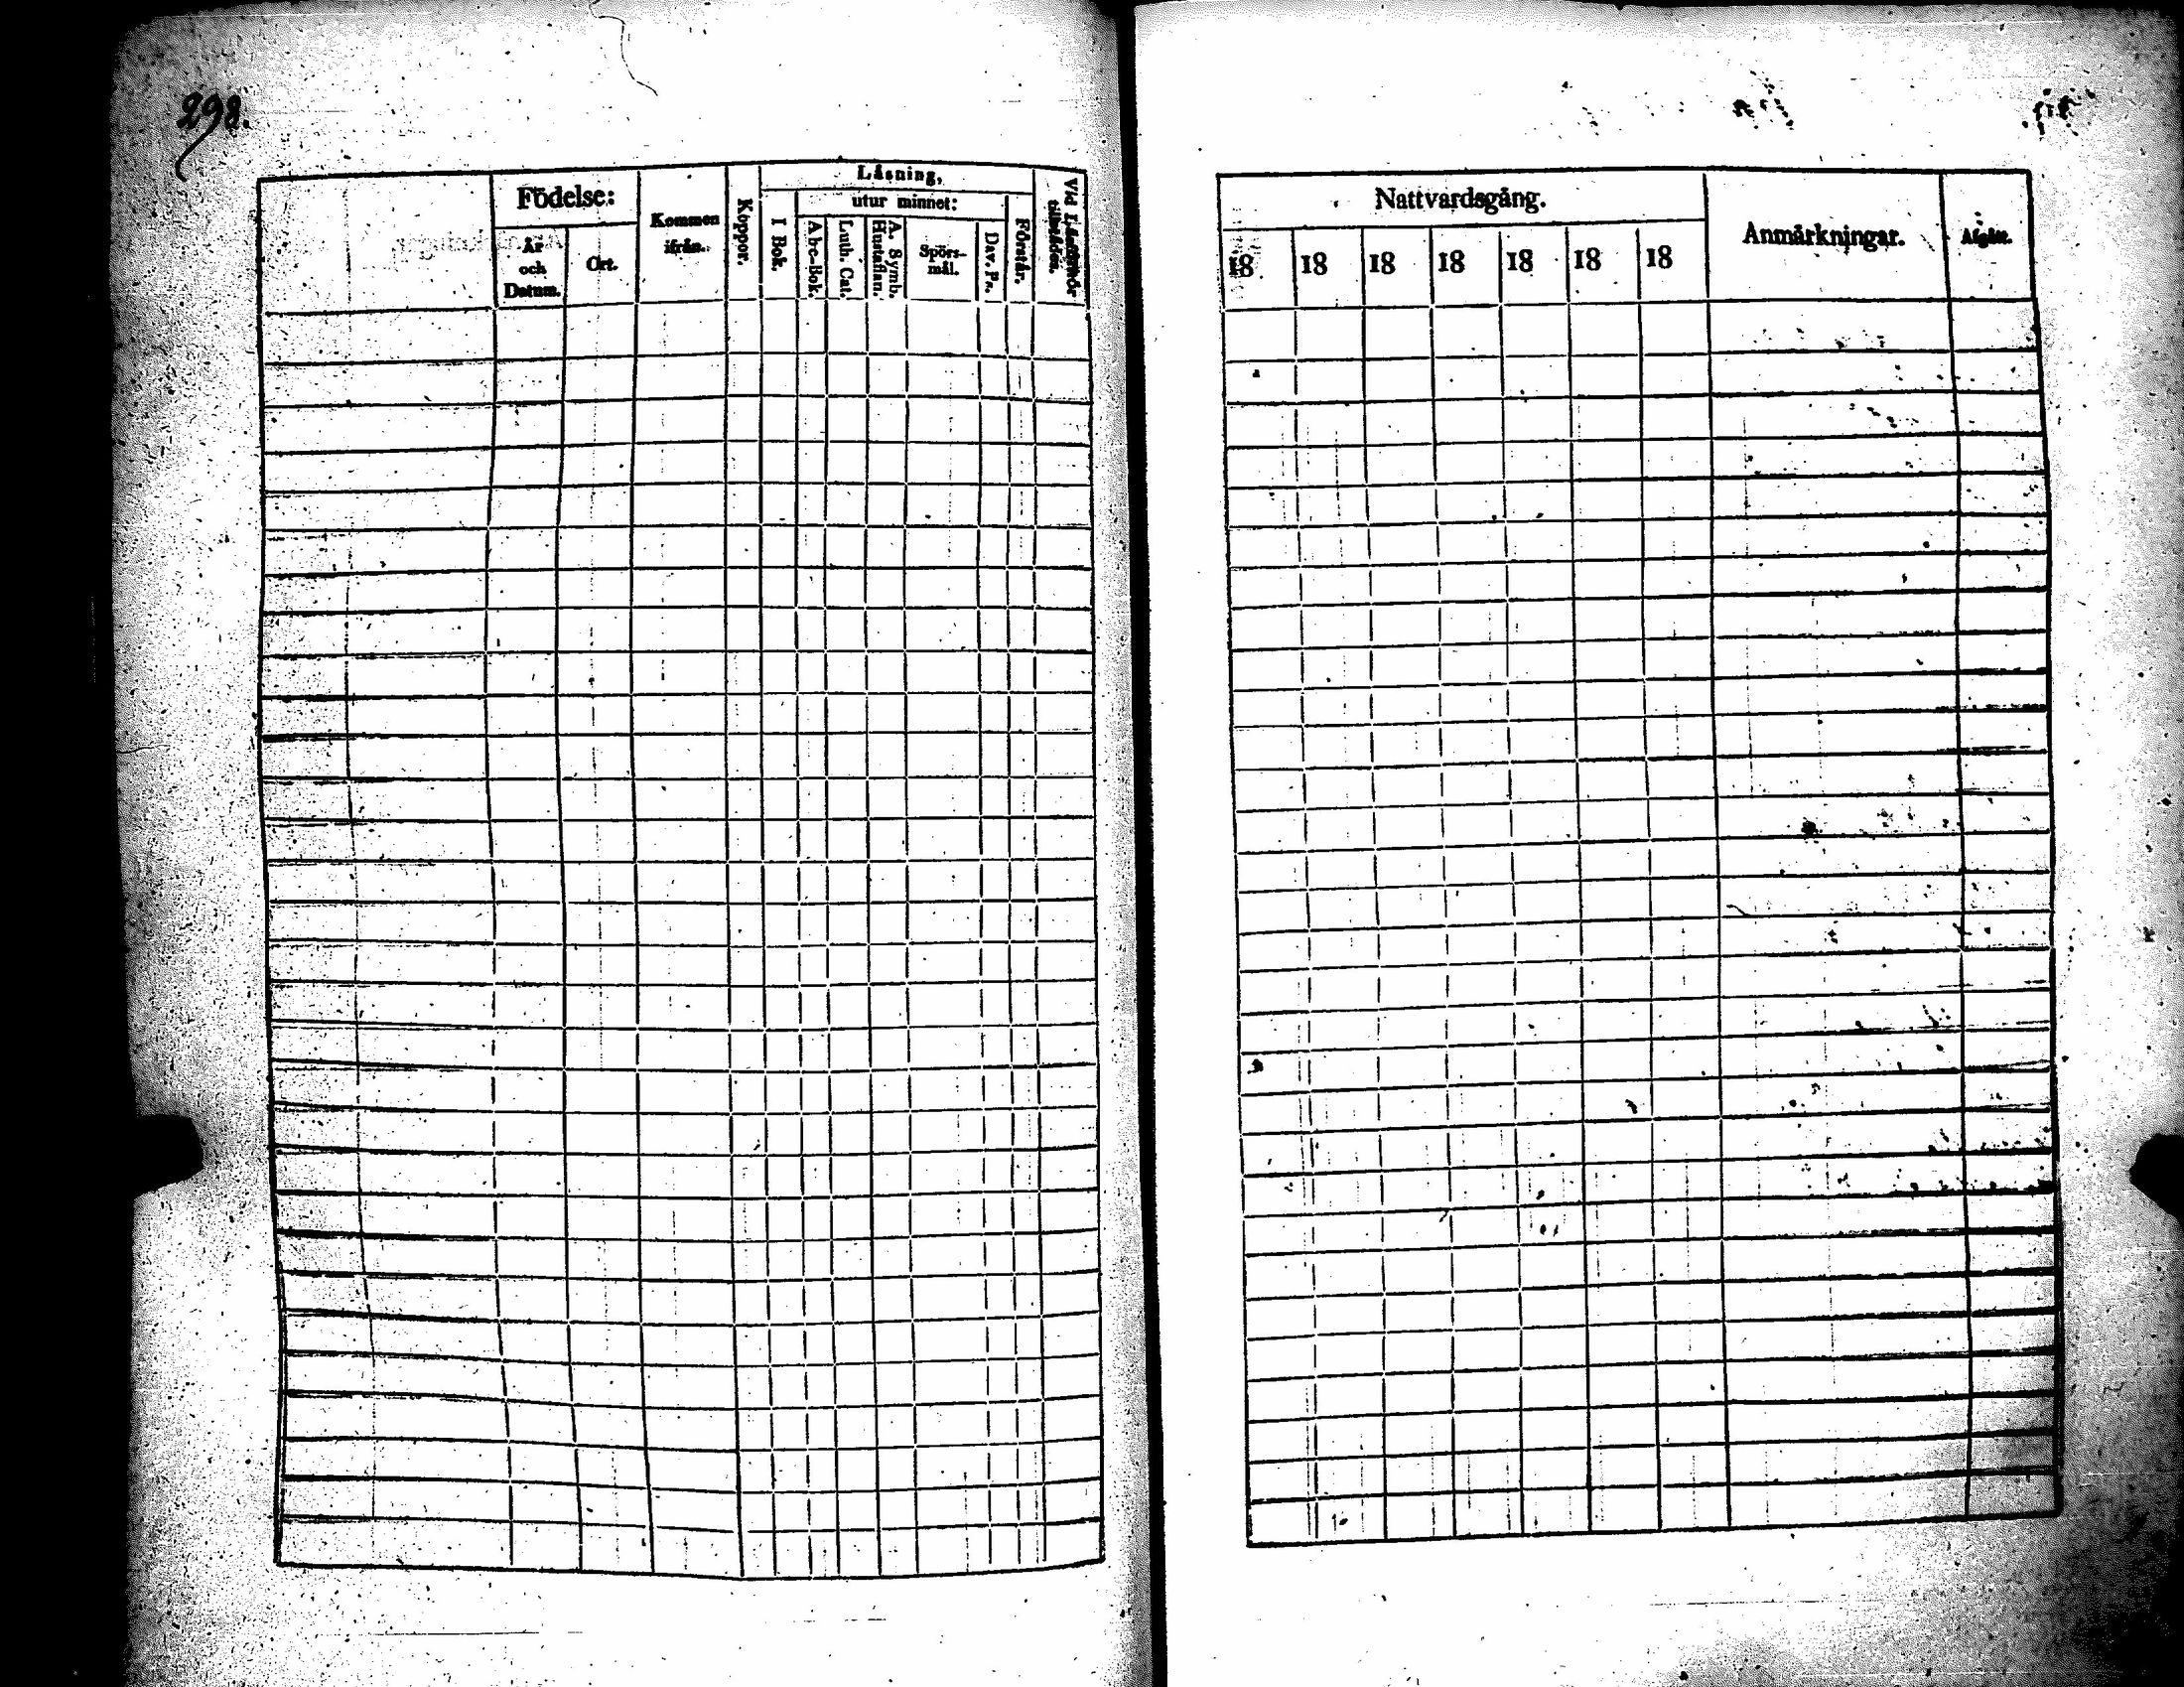 298.
Födelse:
År
och
Datum.
Ort.
Kommen
ifrån.
Koppor.
Läsning,
I Bok.
utur minnet:
Abc-Bok.
Luth. Cat.
A. Symb.
Hustaflan.
Spörs-
mål.
Dav. Ps.
Förstår.
Vid Läsförhör
Nattvardsgång.
18 18 18 18 18 18 18
Anmärkningar.
Afgått.